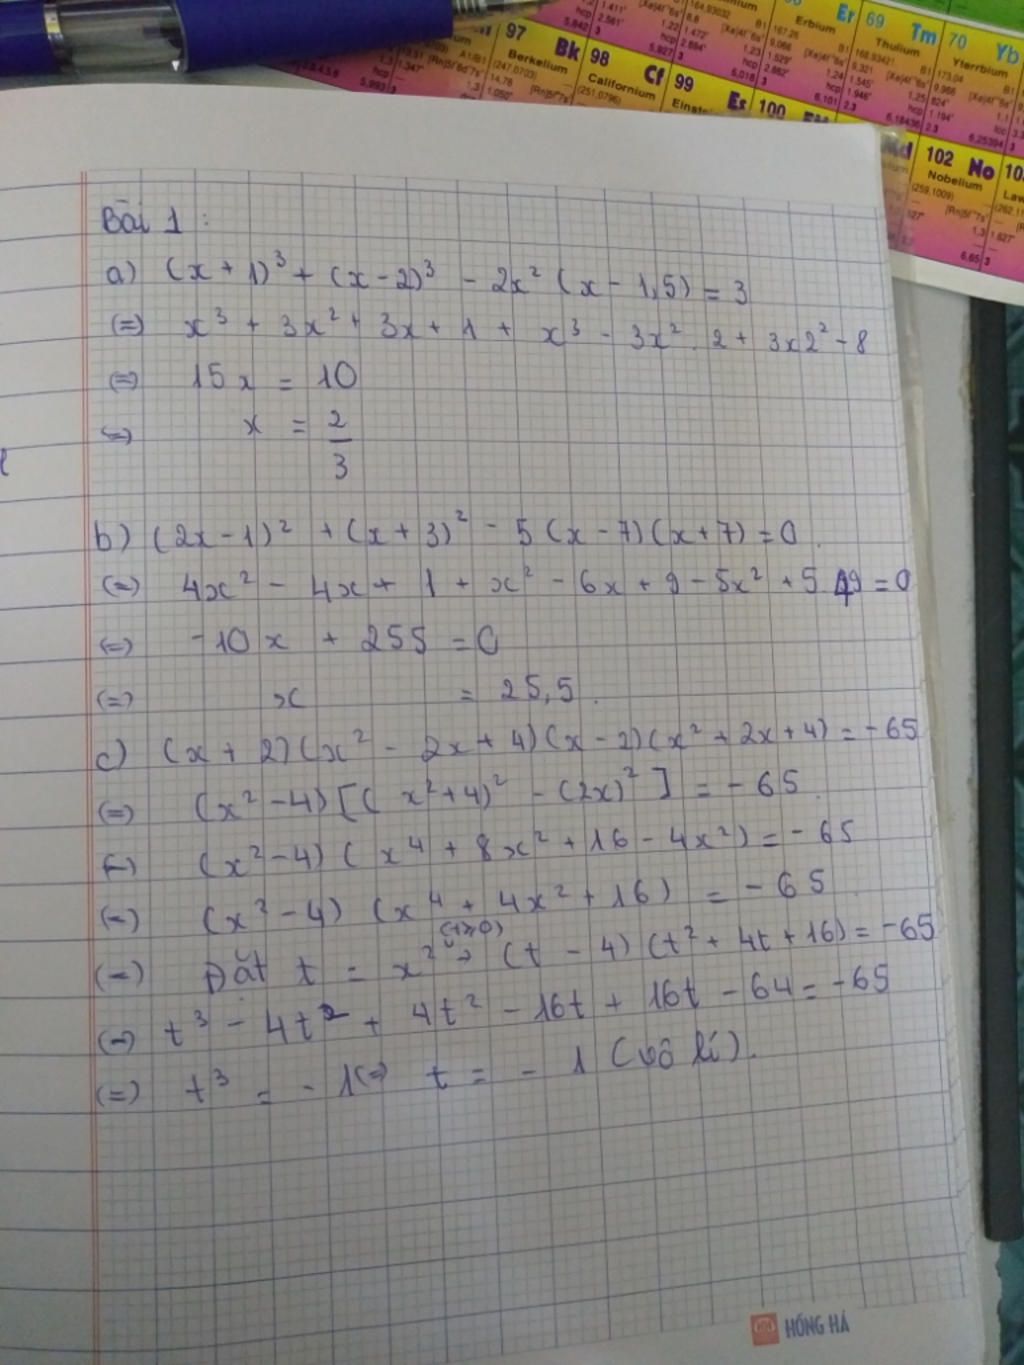 97 Bk Berkelium (247,0703)
98 Cf Californium (251,0796)
99 Es
100
Erbium Er 167,26
69 Tm Thulium 168,93421
70 Yb Yterrbium 173,04
102 No Nobelium (259,1009)
Bài 1 :
a) (x + 1)³ + (x - 2)³ - 2x² (x - 1,5) = 3
(=) x³ + 3x² + 3x + 1 + x³ - 3x² . 2 + 3x2² - 8
(=) 15x = 10
(=) x = 2/3
b) (2x - 1)² + (x + 3)² - 5 (x - 7) (x + 7) = 0
(=) 4x² - 4x + 1 + x² - 6x + 9 - 5x² + 5 . 49 = 0
(=) -10x + 255 = 0
(=) x = 25,5 .
c) (x + 2) (x² - 2x + 4) (x - 2) (x² + 2x + 4) = -65
(=) (x² - 4) [( x² + 4)² - (2x)² ] = - 65
(=) (x² - 4) ( x⁴ + 8x² + 16 - 4x²) = - 65
(=) (x² - 4) (x⁴ + 4x² + 16) = - 65
(=) Đặt t = x² (t ≥ 0) => (t - 4) (t² + 4t + 16) = -65
(=) t³ - 4t² + 4t² - 16t + 16t - 64 = -65
(=) t³ = - 1 (=) t = - 1 (vô lí).
HỒNG HÀ